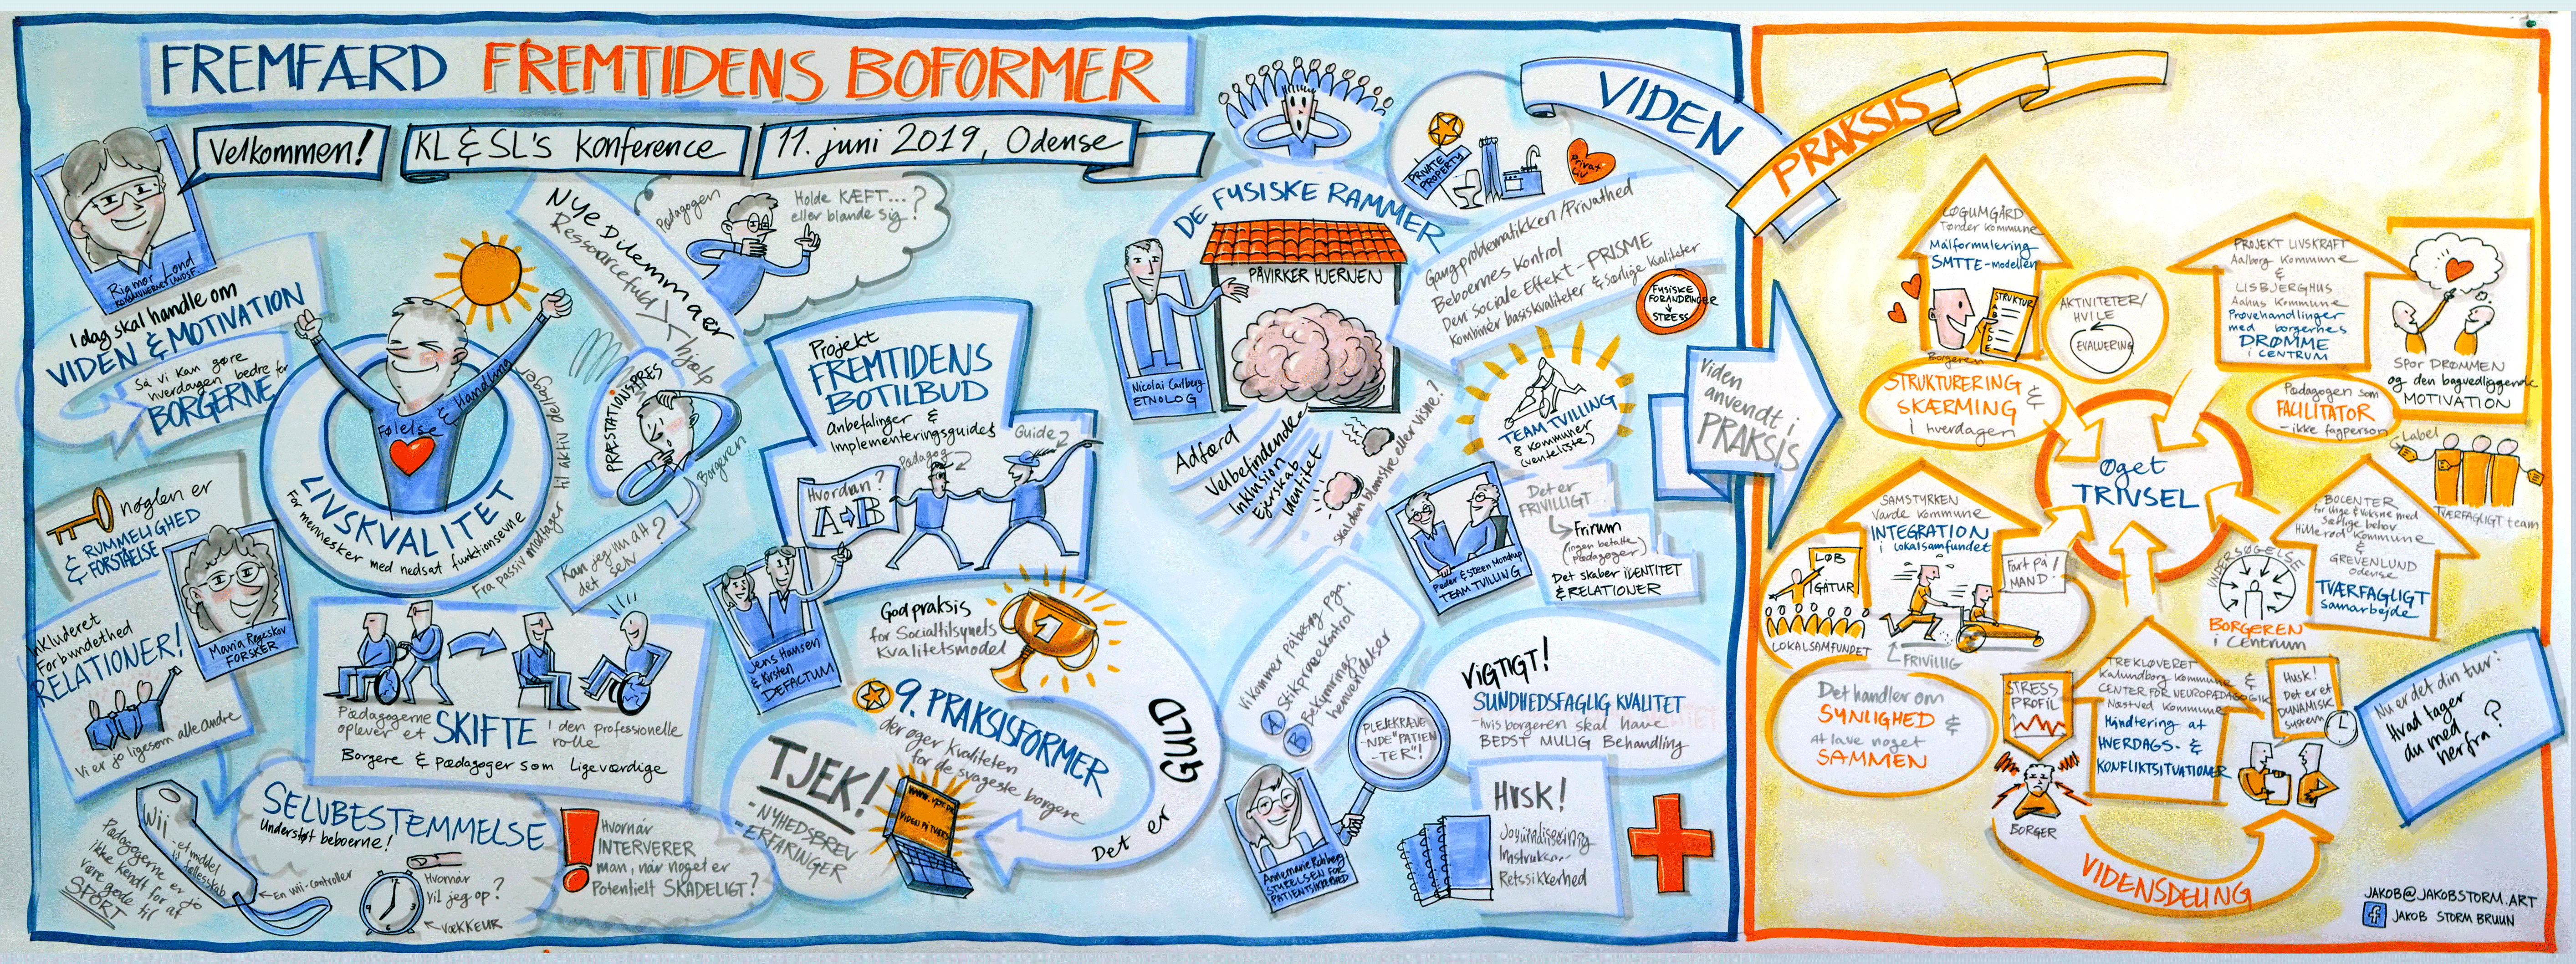 FREMFÆRD FREMTIDENS BOFORMER
Velkommen!
KL & SL's Konference
11. juni 2019, Odense
Rigmor Lond
KOMMUNERNES LANDSF.
I dag skal handle om
VIDEN & MOTIVATION
Så vi kan gøre
hverdagen bedre for
BORGERNE
Følelse & Handling
LIVSKVALITET
For mennesker med nedsat funktionsevne
Fra passiv modtager til aktiv deltager
nøglen er
RUMMELIGHED
& FORSTÅELSE
Maria Røgeskov
FORSKER
Inkluderet
Forbundethed
RELATIONER!
Vi er jo ligesom alle andre
Pædagogerne
oplever et SKIFTE i den professionelle
rolle
Borgere & pædagoger som Ligeværdige
Wii
- et middel
til fællesskab
Pædagogerne er jo
ikke kendt for at
være gode til
SPORT
En wii-controller
SELVBESTEMMELSE
Understøt beboerne!
Hvornår
vil jeg op?
VÆKKEUR
Hvornår
INTERVERER
man, når noget er
Potentielt SKADELIGT?
NYE Dilemmaer
Ressourcefuld
hjælp
Pædagogen
Holde KÆFT...?
eller blande sig?
PRÆSTATIONSPRES
Borgeren
Kan jeg nu alt
det selv?
Projekt
FREMTIDENS
BOTILBUD
Anbefalinger &
Implementeringsguides
Guide
Pædagog
Hvordan?
A B
Jens Hansen
& Kirsten
DEFACTUM
God praksis
for Socialtilsynets
Kvalitetsmodel
1
9. PRAKSISFORMER
der øger kvaliteten
for de svageste borgere
Det er GULD
TJEK!
- NYHEDSBREV
- ERFARINGER
www.vpt.dk
VIDEN PÅ TVÆRS
DE FYSISKE RAMMER
PÅVIRKER HJERNEN
Nicolai Carlberg
ETNOLOG
Adfærd
Velbefindende
Inklusion
Ejerskab
Identitet
Skal den blomstre eller visne?
PRIVATE
PROPERTY
Privat
liv
Gangproblematikken/Privathed
Beboernes Kontrol
Den Sociale Effekt - PRISME
Kombinér basiskvaliteter & Særlige Kvaliteter
FYSISKE
FORANDRINGER
STRESS
TEAM TVILLING
8 kommuner
(venteliste)
Peder & Steen Mondrup
TEAM TVILLING
Det er
FRIVILLIGT
Frirum
(ingen betalte
pædagoger)
Det skaber IDENTITET
& RELATIONER
Vi kommer på besøg pga.
A Stikprøvekontrol
B Bekymrings
henvendelser
PLEJEKRÆVE
-NDE "PATIEN
-TER"!
Annemarie Rohberg
STYRELSEN FOR
PATIENTSIKKERHED
VIGTIGT!
SUNDHEDSFAGLIG KVALITET
- hvis borgeren skal have
BEDST MULIG Behandling
Husk!
Journalisering
Retssikkerhed
VIDEN
PRAKSIS
Viden
anvendt i
PRAKSIS
LØGUMGÅRD
Tønder Kommune
Målformulering
SMTTE-modellen
STRUKTUR
Borgeren
STRUKTURERING &
SKÆRMING
i hverdagen
AKTIVITETER/
HVILE
EVALUERING
PROJEKT LIVSKRAFT
Aalborg Kommune
&
LISBJERGHUS
Aarhus Kommune
Prøvehandlinger
med borgernes
DRØMME
i CENTRUM
SPOR DRØMMEN
og den bagvedliggende
MOTIVATION
Pædagogen som
FACILITATOR
- ikke fagperson
Label
TVÆRFAGLIGT team
Øget
TRIVSEL
SAMSTYRKEN
Varde Kommune
INTEGRATION
i Lokalsamfundet
LØB
IGATUR
LOKALSAMFUNDET
Fart på
MAND!
FRIVILLIG
Det handler om
SYNLIGHED &
At lave noget
SAMMEN
BOCENTER
for Unge & Voksne med
Særlige behov
Hillerød Kommune
&
GREVENLUND
Odense
TVÆRFAGLIGT
Samarbejde
UNDERSØGELSE
BORGEREN
i Centrum
TREKLØVERET
Kalundborg Kommune &
CENTER FOR NEUROPÆDAGOGIK
Næstved Kommune
Håndtering af
HVERDAGS- &
KONFLIKTSITUATIONER
STRESS
PROFIL
BORGER
Husk!
Det er et
DYNAMISK
System
VIDENSDELING
Nu er det din tur:
Hvad tager
du med
herfra?
JAKOB@JAKOBSTORM.ART
f JAKOB STORM BRUUN